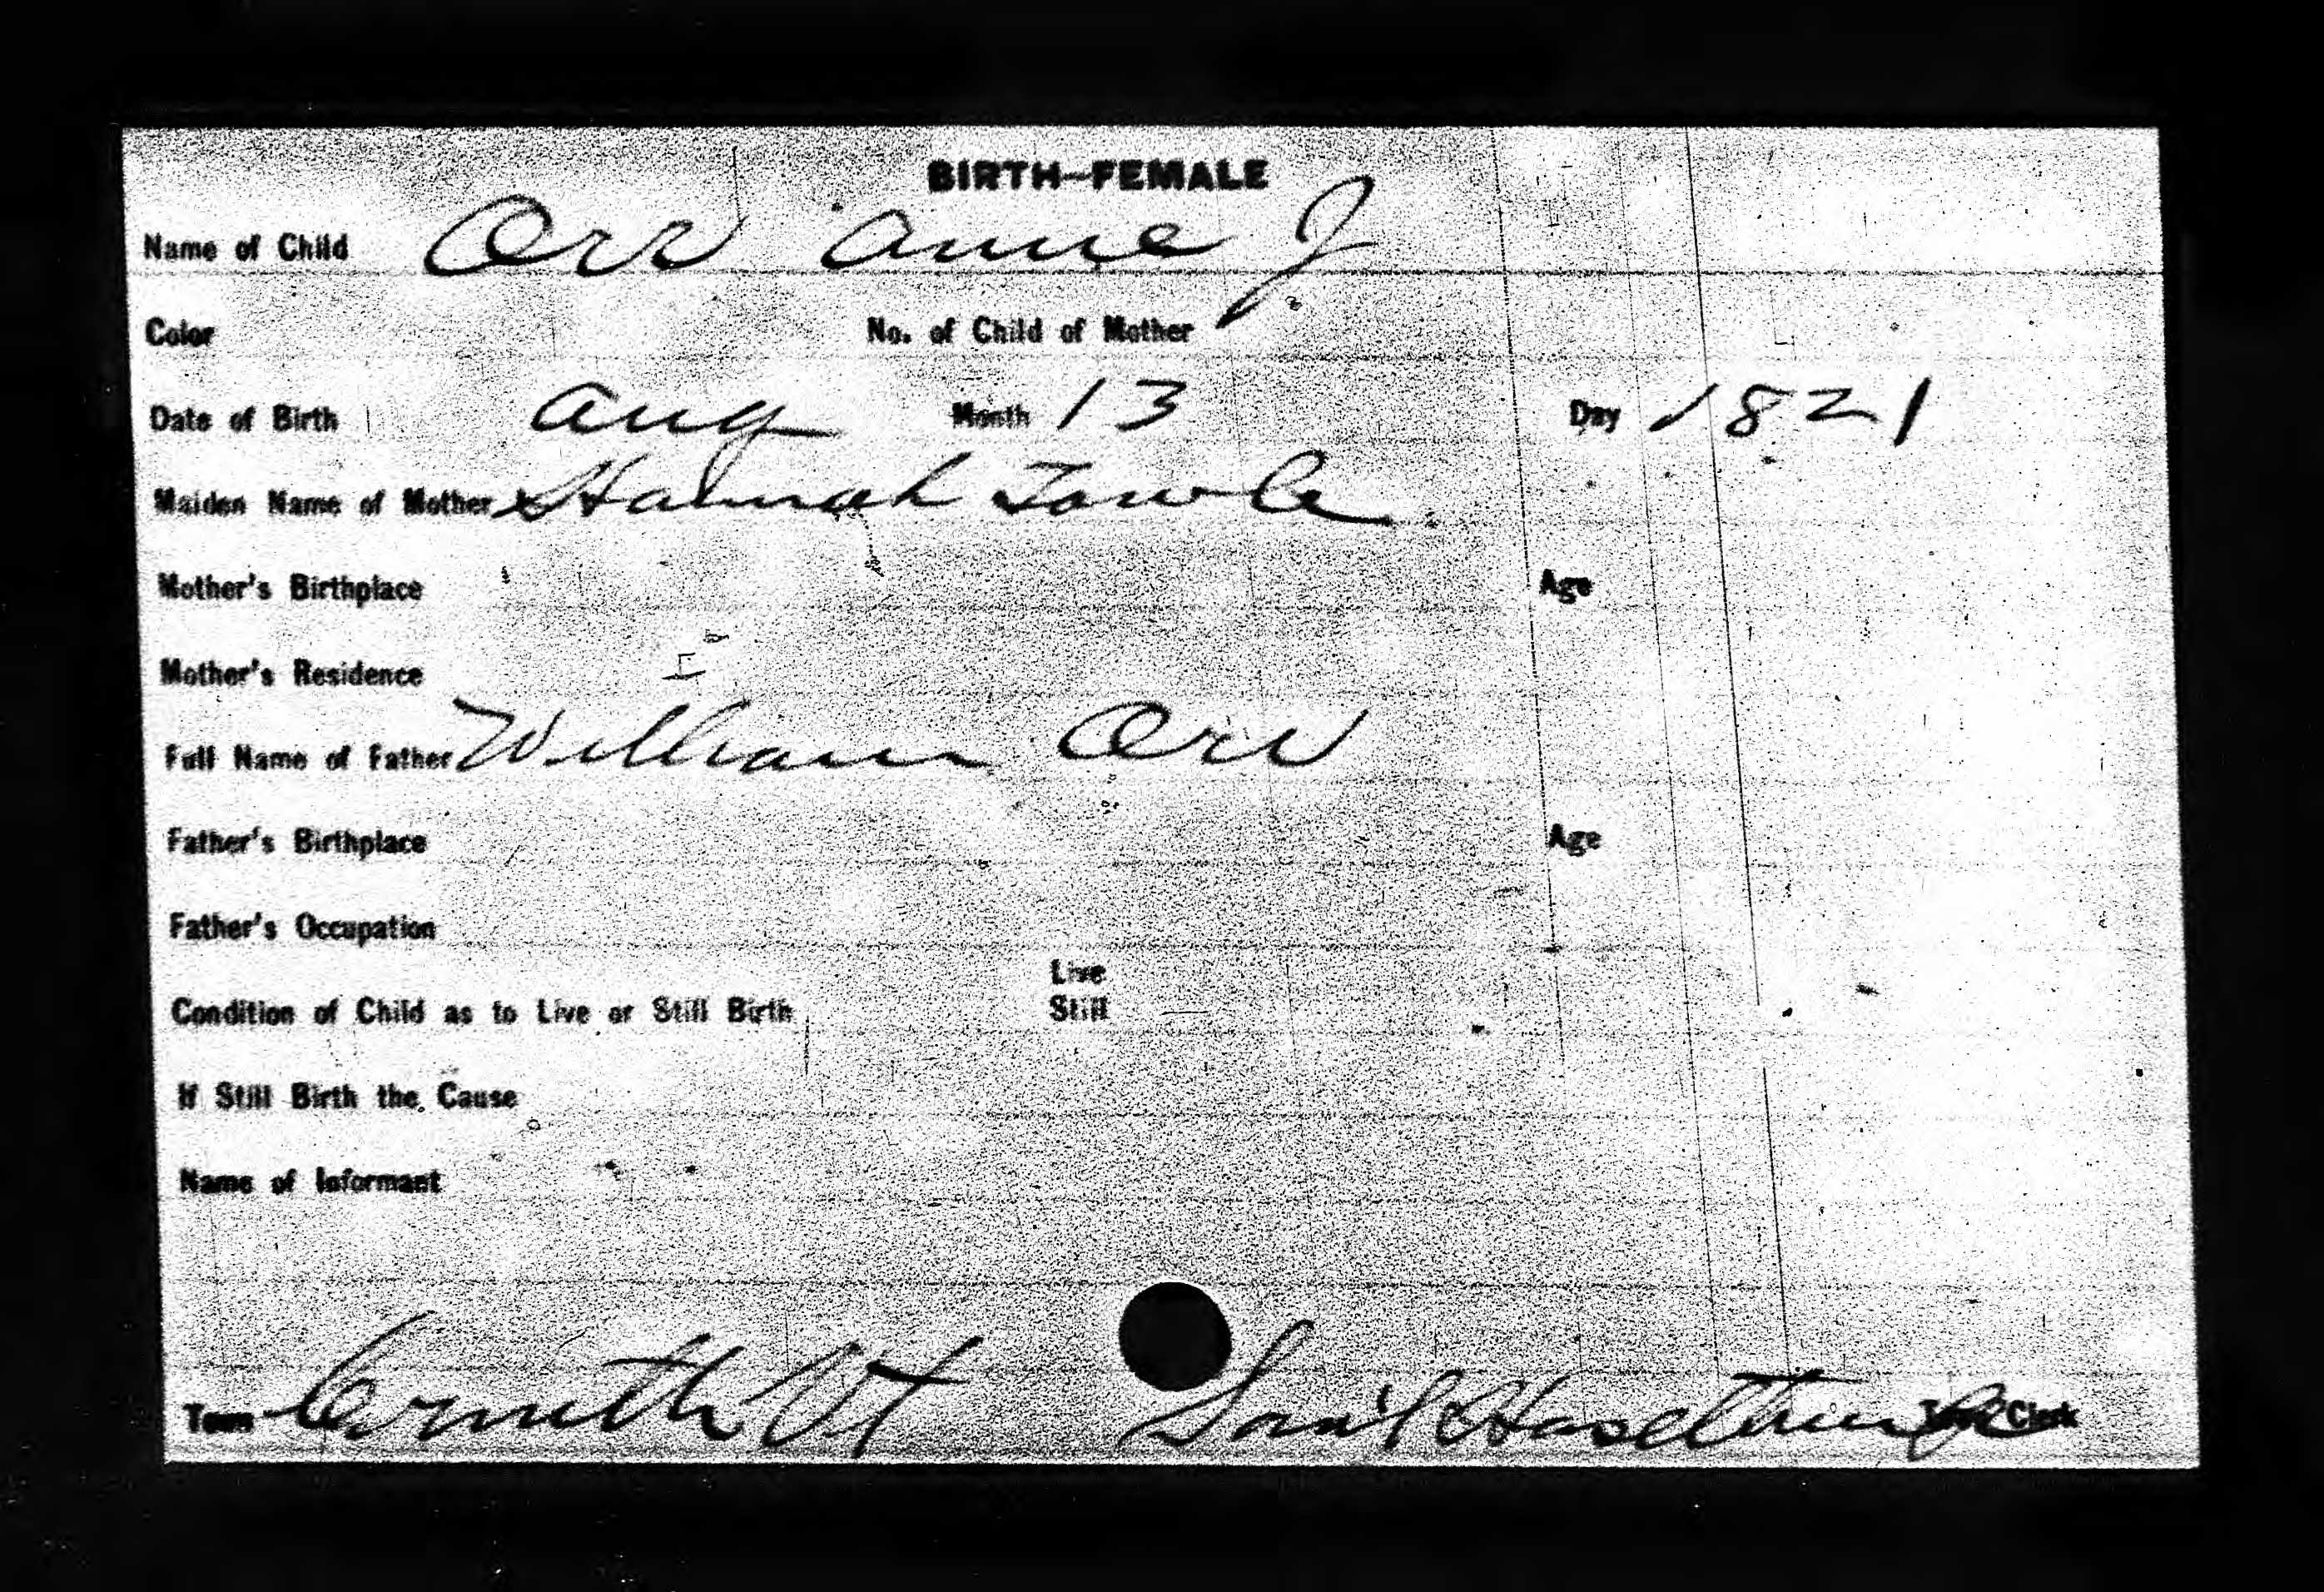 BIRTH—FEMALE
Name of Child Orr Anne J
Color No. of Child of Mother
Date of Birth Aug Month 13 Day 1821
Maiden Name of Mother Hannah Towle
Mother's Birthplace Age
Mother's Residence
Full Name of Father William Orr
Father's Birthplace Age
Father's Occupation
Live
Condition of Child as to Live or Still Birth Still
If Still Birth the Cause
Name of Informant
Town Corinth Vt Sam'l Town Clerk